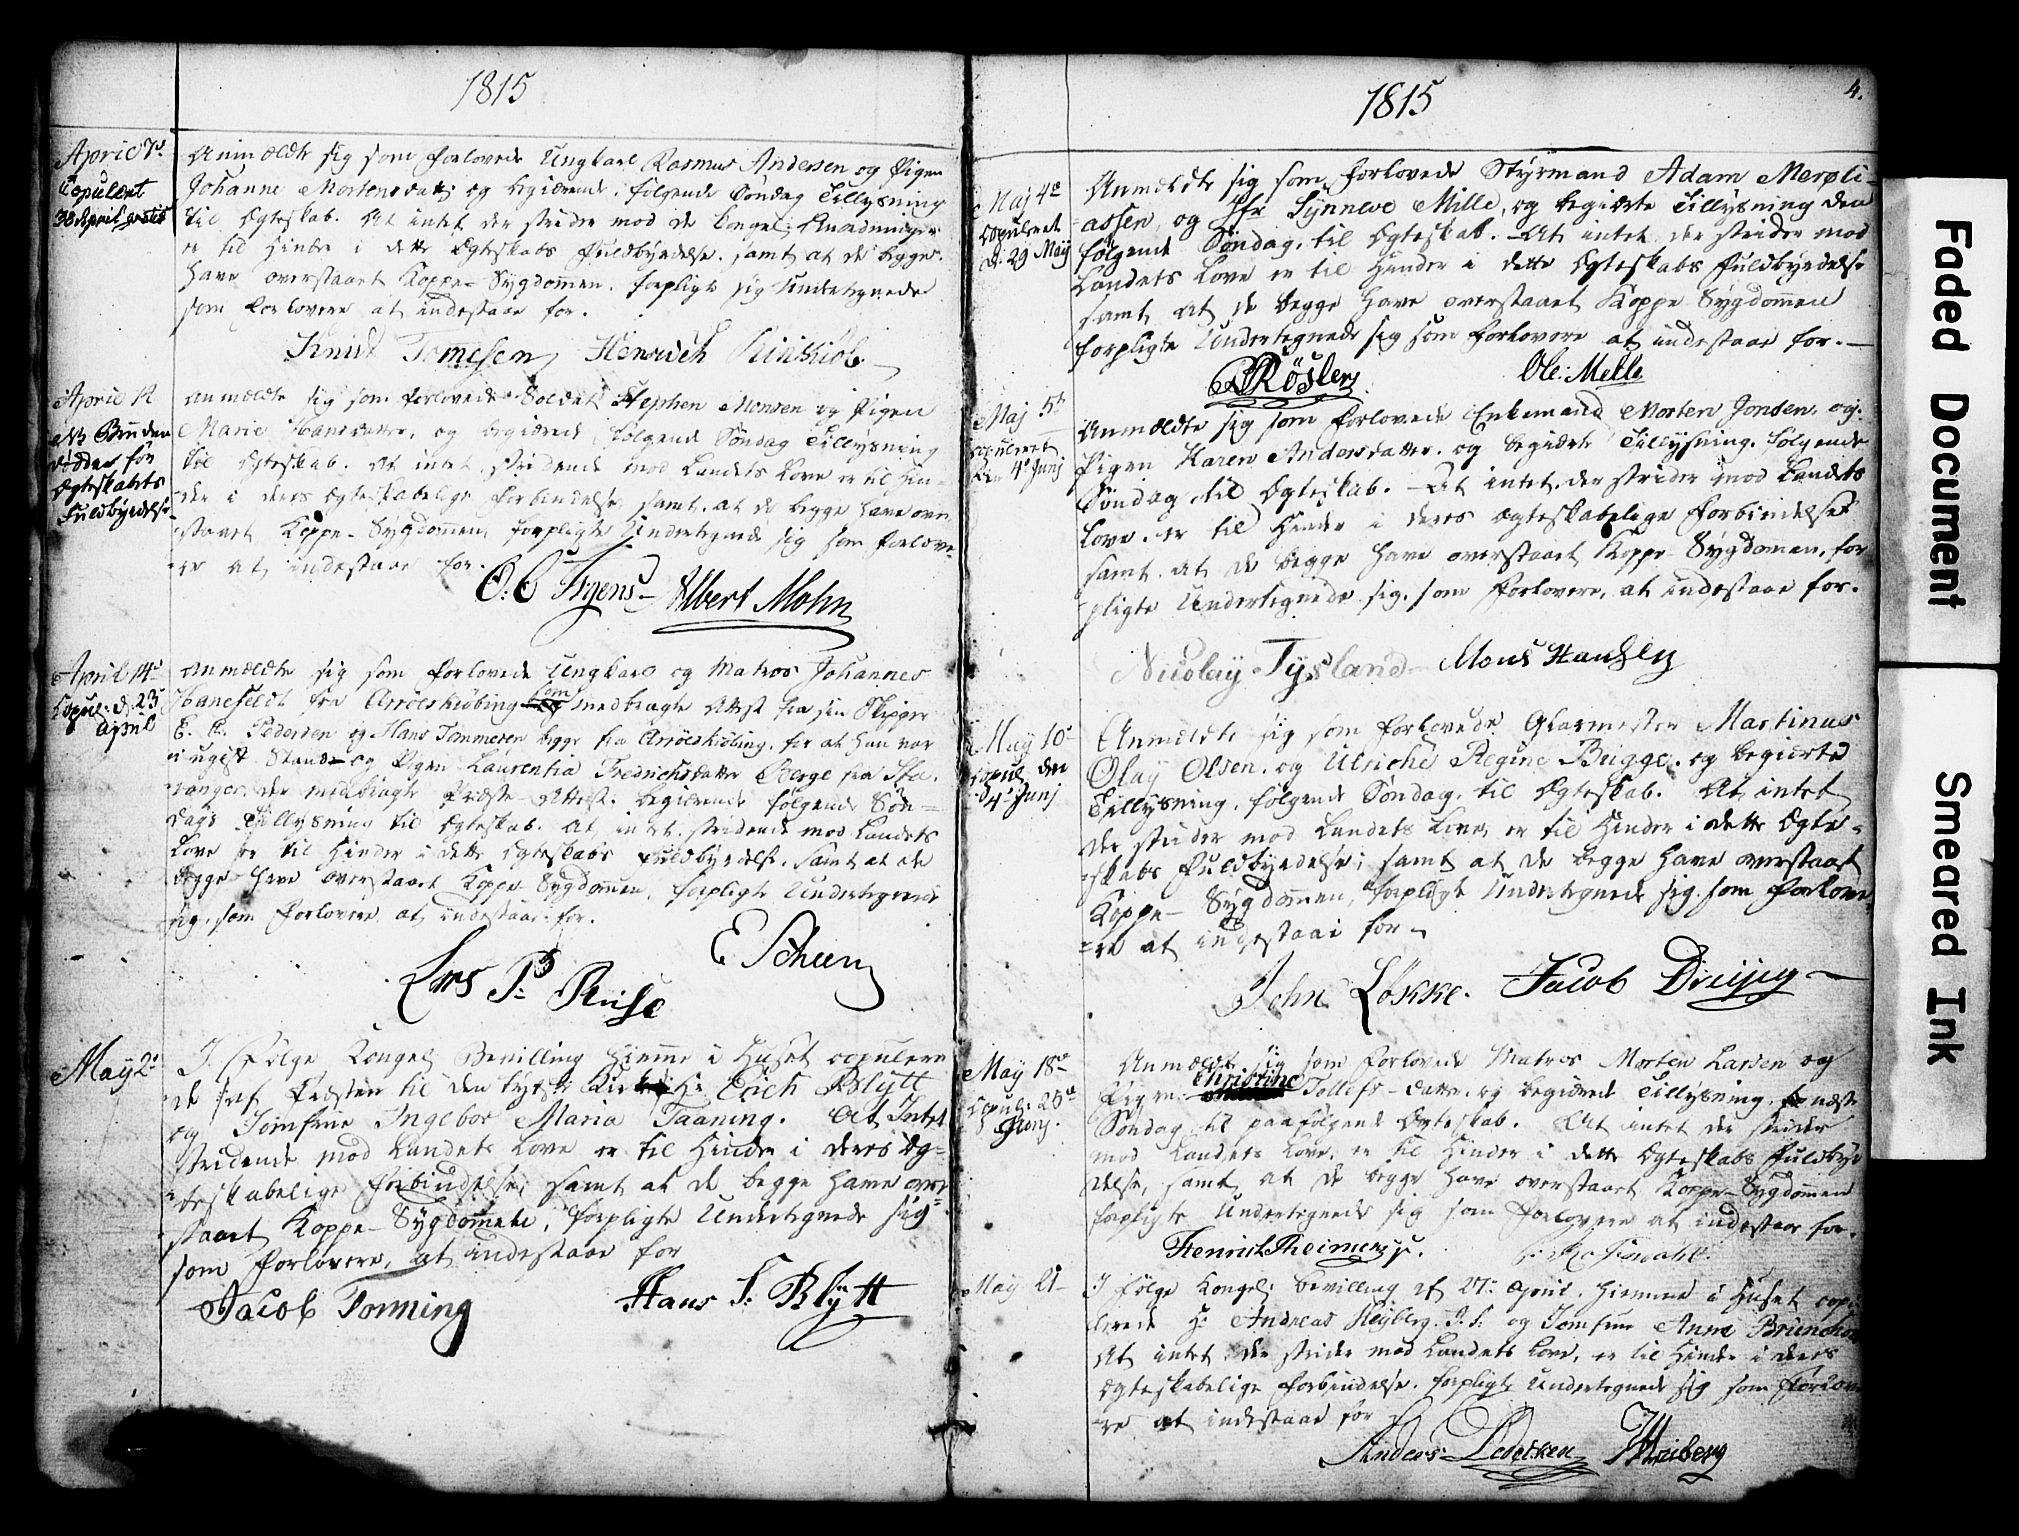 1815
April 7de
Copuleret
30 April gratis
Anmeldte sig som forlovede Ungkarl Rasmus Andersen og Pigen
Johanne Mortensdatter og begiærede følgende Søndag Tillysning
til Ægteskab. At intet der strider mod de Kongel: Anordninger
er til Hinder i dette Ægteskabs Fuldbyrdelse, samt at de begge
have overstaaet Koppe-Sygdommen, forpligte sig Undertegnede
som Forlovere at indestaae for.
Knud Tomesen Henrich
April 12
NB Bruden
døde før
Ægteskabets
Fuldbyrdelse
Anmeldte sig som forlovede Soldat Stephen Monsen og Pigen
Marie Hansdatter, og begiærede følgende Søndag Tillysning
til Ægteskab. At intet stridende mod Landets Love er til Hin-
der i deres Ægteskabelige Forbindelse, samt at de begge have over
staaet Koppe-Sygdommen, forpligte Undertegnede sig som Forlove-
re at indestaae for.
O: C Albert Mohn
April 14de
Copul: d. 23
April
Anmeldte sig som forlovede Ungkarl og Matros Johannes
Hansfeldt fra Arröeskiöbing som medbragte Attest fra sin Skipper
E. C. Pedersen og Hans Tommesen begge fra Arröeskiöbing, for at han var
i ugift Stand og Pigen Laurentia Fredrichsdatter Berge fra Sta-
vanger der medbragte Præste-Attest, begiærede følgende Søn-
dags Tillysning til Ægteskab. At intet stridende mod Landets
Love er til Hinder i dette Ægteskabs Fuldbyrdelse, samt at de
begge have overstaaet Koppe-Sygdommen, forpligte Undertegnede
sig som Forlovere at indestaae for.
Lars P: E
May 2de
I Følge Kongel: Bevilling hiemme i Huset copulere-
de af Præsten til den tydske Kirke Hr Erich Blÿtt
og Jomfrue Ingebor Maria Taaning. At Intet
stridende mod Landets Love er til Hinder i deres Æg-
teskabelige Forbindelse, samt at de begge have over-
staaet Koppe-Sygdommene, forpligte Undertegnede sig
som Forlovere, at indestaae for
Jacob Tonning Hans S: Blÿtt
1815
4.
Maj 4de
Copuleret
d: 29 Maÿ
Anmeldte sig som forlovede Styrmand Adam Merøli-
assen, og Jfr Synneve Mille, og begiærte Tillysning den
følgende Søndag, til Ægteskab. At intet der strider mod
Landets Love er til Hinder i dette Ægteskabs Fuldbyrdelse
samt at de begge have overstaaet Koppe Sygdommen
forpligte Undertegnede sig som Forlovere at indestaae for.
Röslers Ole: Melle
Maj 5te
Copuleret
den 4de Junj
Anmeldte sig som forlovede Enkemand Morten Jonsen, og
Pigen Karen Andersdatter, og begiærte Tillysning følgende
Søndag til Ægteskab. At intet der strider mod Landets
Love er til Hinder i deres Ægteskabelige Forbindelse
samt at de begge have overstaaet Koppe Sygdommen, for
pligte Undertegnede sig som Forlovere, at indestaae for.
Nicolaÿ Tÿsland Mons Hansen
May 10de
Copul. den
4de Junj
Anmeldte sig som forlovede Glasmester Martinus
Olay Olsen og Ulriche Regine Brigge, og begiærte
Tillysning følgende Søndag til Ægteskab. At intet
der strider mod Landets Love, er til Hinder i dette Ægte-
skabs Fuldbyrdelse; samt at de begge have overstaaet
Koppe-Sygdommen, forpligte Undertegnede sig som Forlove-
re at indestaae for
John Løkke. Jacob
May 18de
Copul: 25de
Junj.
Anmeldte sig som forlovede Matros Morten Larsen og
Pigen Christine Tollefs-datter og begiærede Tillysning næste
Søndag til paafølgende Ægteskab. At intet der strider
mod Landets Love, er til Hinder i dette Ægteskabs Fuldbyr
delse, samt at de begge have overstaaet Koppe-Sygdommen
forpligte Undertegnede sig som Forlovere at indestaae for.
Henrich
May 21
I Følge Kongel: Bevilling af 27: April, hiemme i Huset copu-
lerede Hr Andreas Heÿberg og Jomfrue Anne
At intet der strider mod Landets Love, er til Hinder i deres
Ægteskabelige Forbindelse, forpligte Undertegnede sig som Forlove
re at indestaae for
Anders Heiberg
Faded Document
Smeared Ink